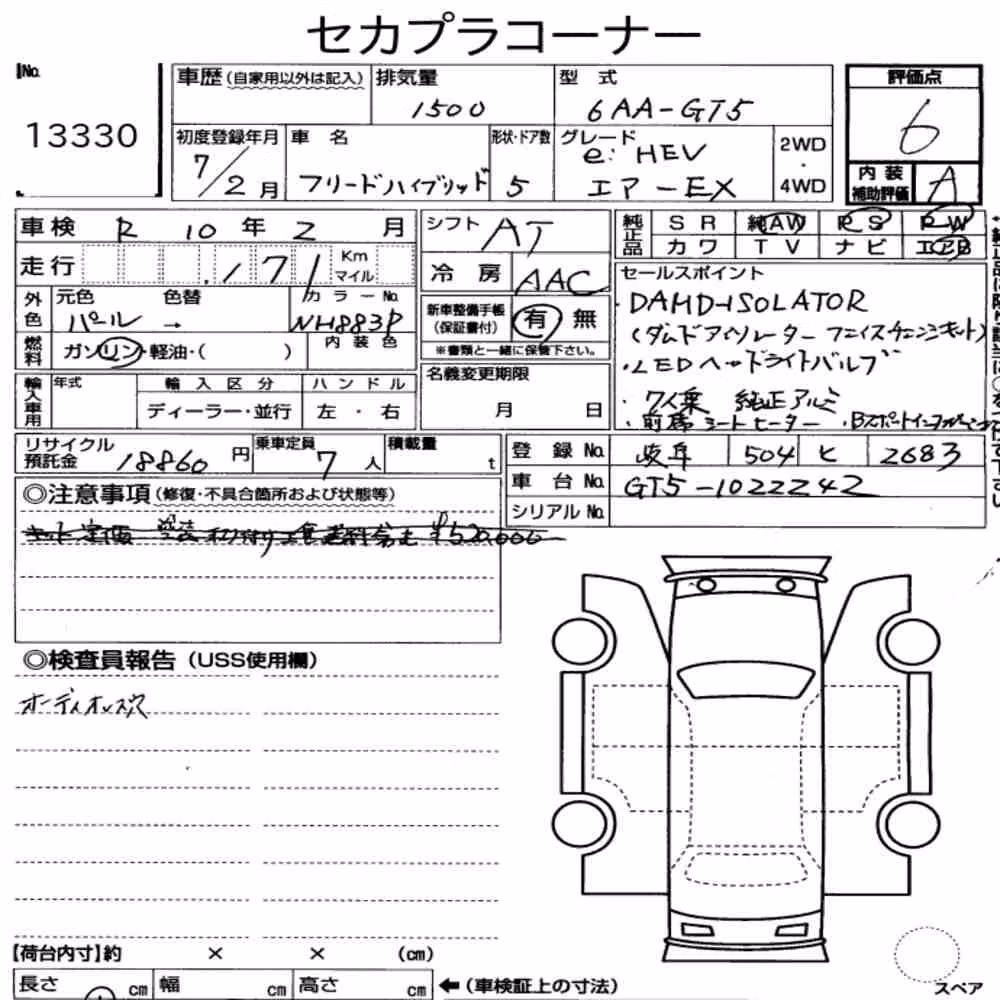 セカプラコーナー
No.
13330
車歴 (自家用以外は記入)
排気量
1500
型 式
6AA-GT5
初度登録年月
7/2月
車 名
フリードハイブリッド
形状・ドア数
5
グレード
e:HEV
エアーEX
2WD
・
4WD
評価点
6
内 装
補助評価
A
車検 R 10 年 2 月
走行 171 Km マイル
外色
元色 色替
パール →
カラーNo.
NH883P
燃料
ガソリン・軽油・( )
内 装 色
輸入車用
年式
輸 入 区 分
ディーラー・並行
ハ ン ド ル
左 ・ 右
シフト AT
冷 房 AAC
新車整備手帳
(保証書付)
有 無
※書類と一緒に保管下さい。
名義変更期限
月 日
純正品
S R 純AW P S P W
カワ T V ナビ エアB
セールスポイント
DAMD-ISOLATOR
(ダムドアイソレーター フェイスチェンジキット)
・LEDヘッドライトバルブ
・7人乗 純正アルミ
・前席シートヒーター
リサイクル
預託金 18860 円
乗車定員
7 人
積載量
t
登 録 No. 岐阜 504 ヒ 2683
車 台 No. GT5-1022242
シリアル No.
◎注意事項 (修復・不具合箇所および状態等)
◎検査員報告 (USS使用欄)
オーディオレス穴
【荷台内寸】約 × × (cm)
長さ cm 幅 cm 高さ cm
←(車検証上の寸法)
スペア